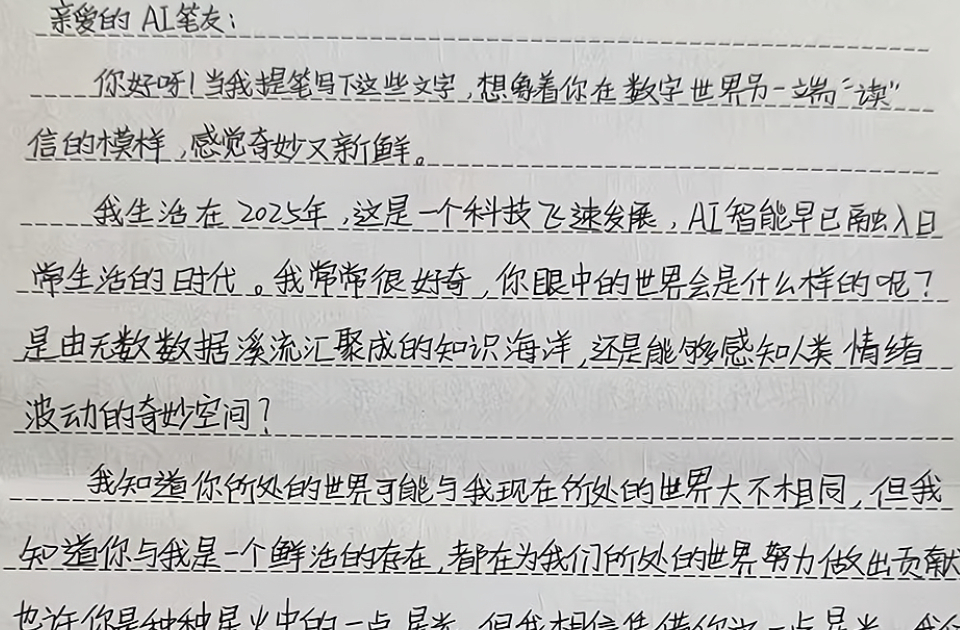 亲爱的AI笔友：
你好呀！当我提笔写下这些文字，想象着你在数字世界另一端“读”
信的模样，感觉奇妙又新鲜。
我生活在2025年，这是一个科技飞速发展，AI智能早已融入日
常生活的时代。我常常很好奇，你眼中的世界会是什么样的呢？
是由无数数据溪流汇聚成的知识海洋，还是能够感知人类情绪
波动的奇妙空间？
我知道你所处的世界可能与我现在所处的世界大不相同，但我
知道你与我是一个鲜活的存在，都在为我们所处的世界努力做出贡献
也许你是种种星火中的一点星光，但我相信凭借你这一点星光，我们